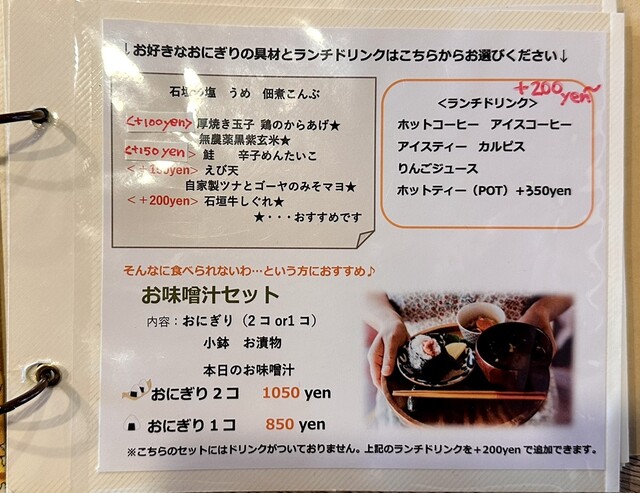 ↓お好きなおにぎりの具材とランチドリンクはこちらからお選びください↓
石垣の塩 うめ 佃煮こんぶ
<+100yen> 厚焼き玉子 鶏のからあげ★
無農薬黒紫玄米★
<+150yen> 鮭 辛子めんたいこ
<+150yen> えび天
自家製ツナとゴーヤのみそマヨ★
<+200yen> 石垣牛しぐれ★
★・・・おすすめです
+200yen~
<ランチドリンク>
ホットコーヒー アイスコーヒー
アイスティー カルピス
りんごジュース
ホットティー(POT)+350yen
そんなに食べられないわ…という方におすすめ♪
お味噌汁セット
内容:おにぎり(2コor1コ)
小鉢 お漬物
本日のお味噌汁
おにぎり2コ 1050 yen
おにぎり1コ 850 yen
※こちらのセットにはドリンクがついておりません。上記のランチドリンクを+200yenで追加できます。